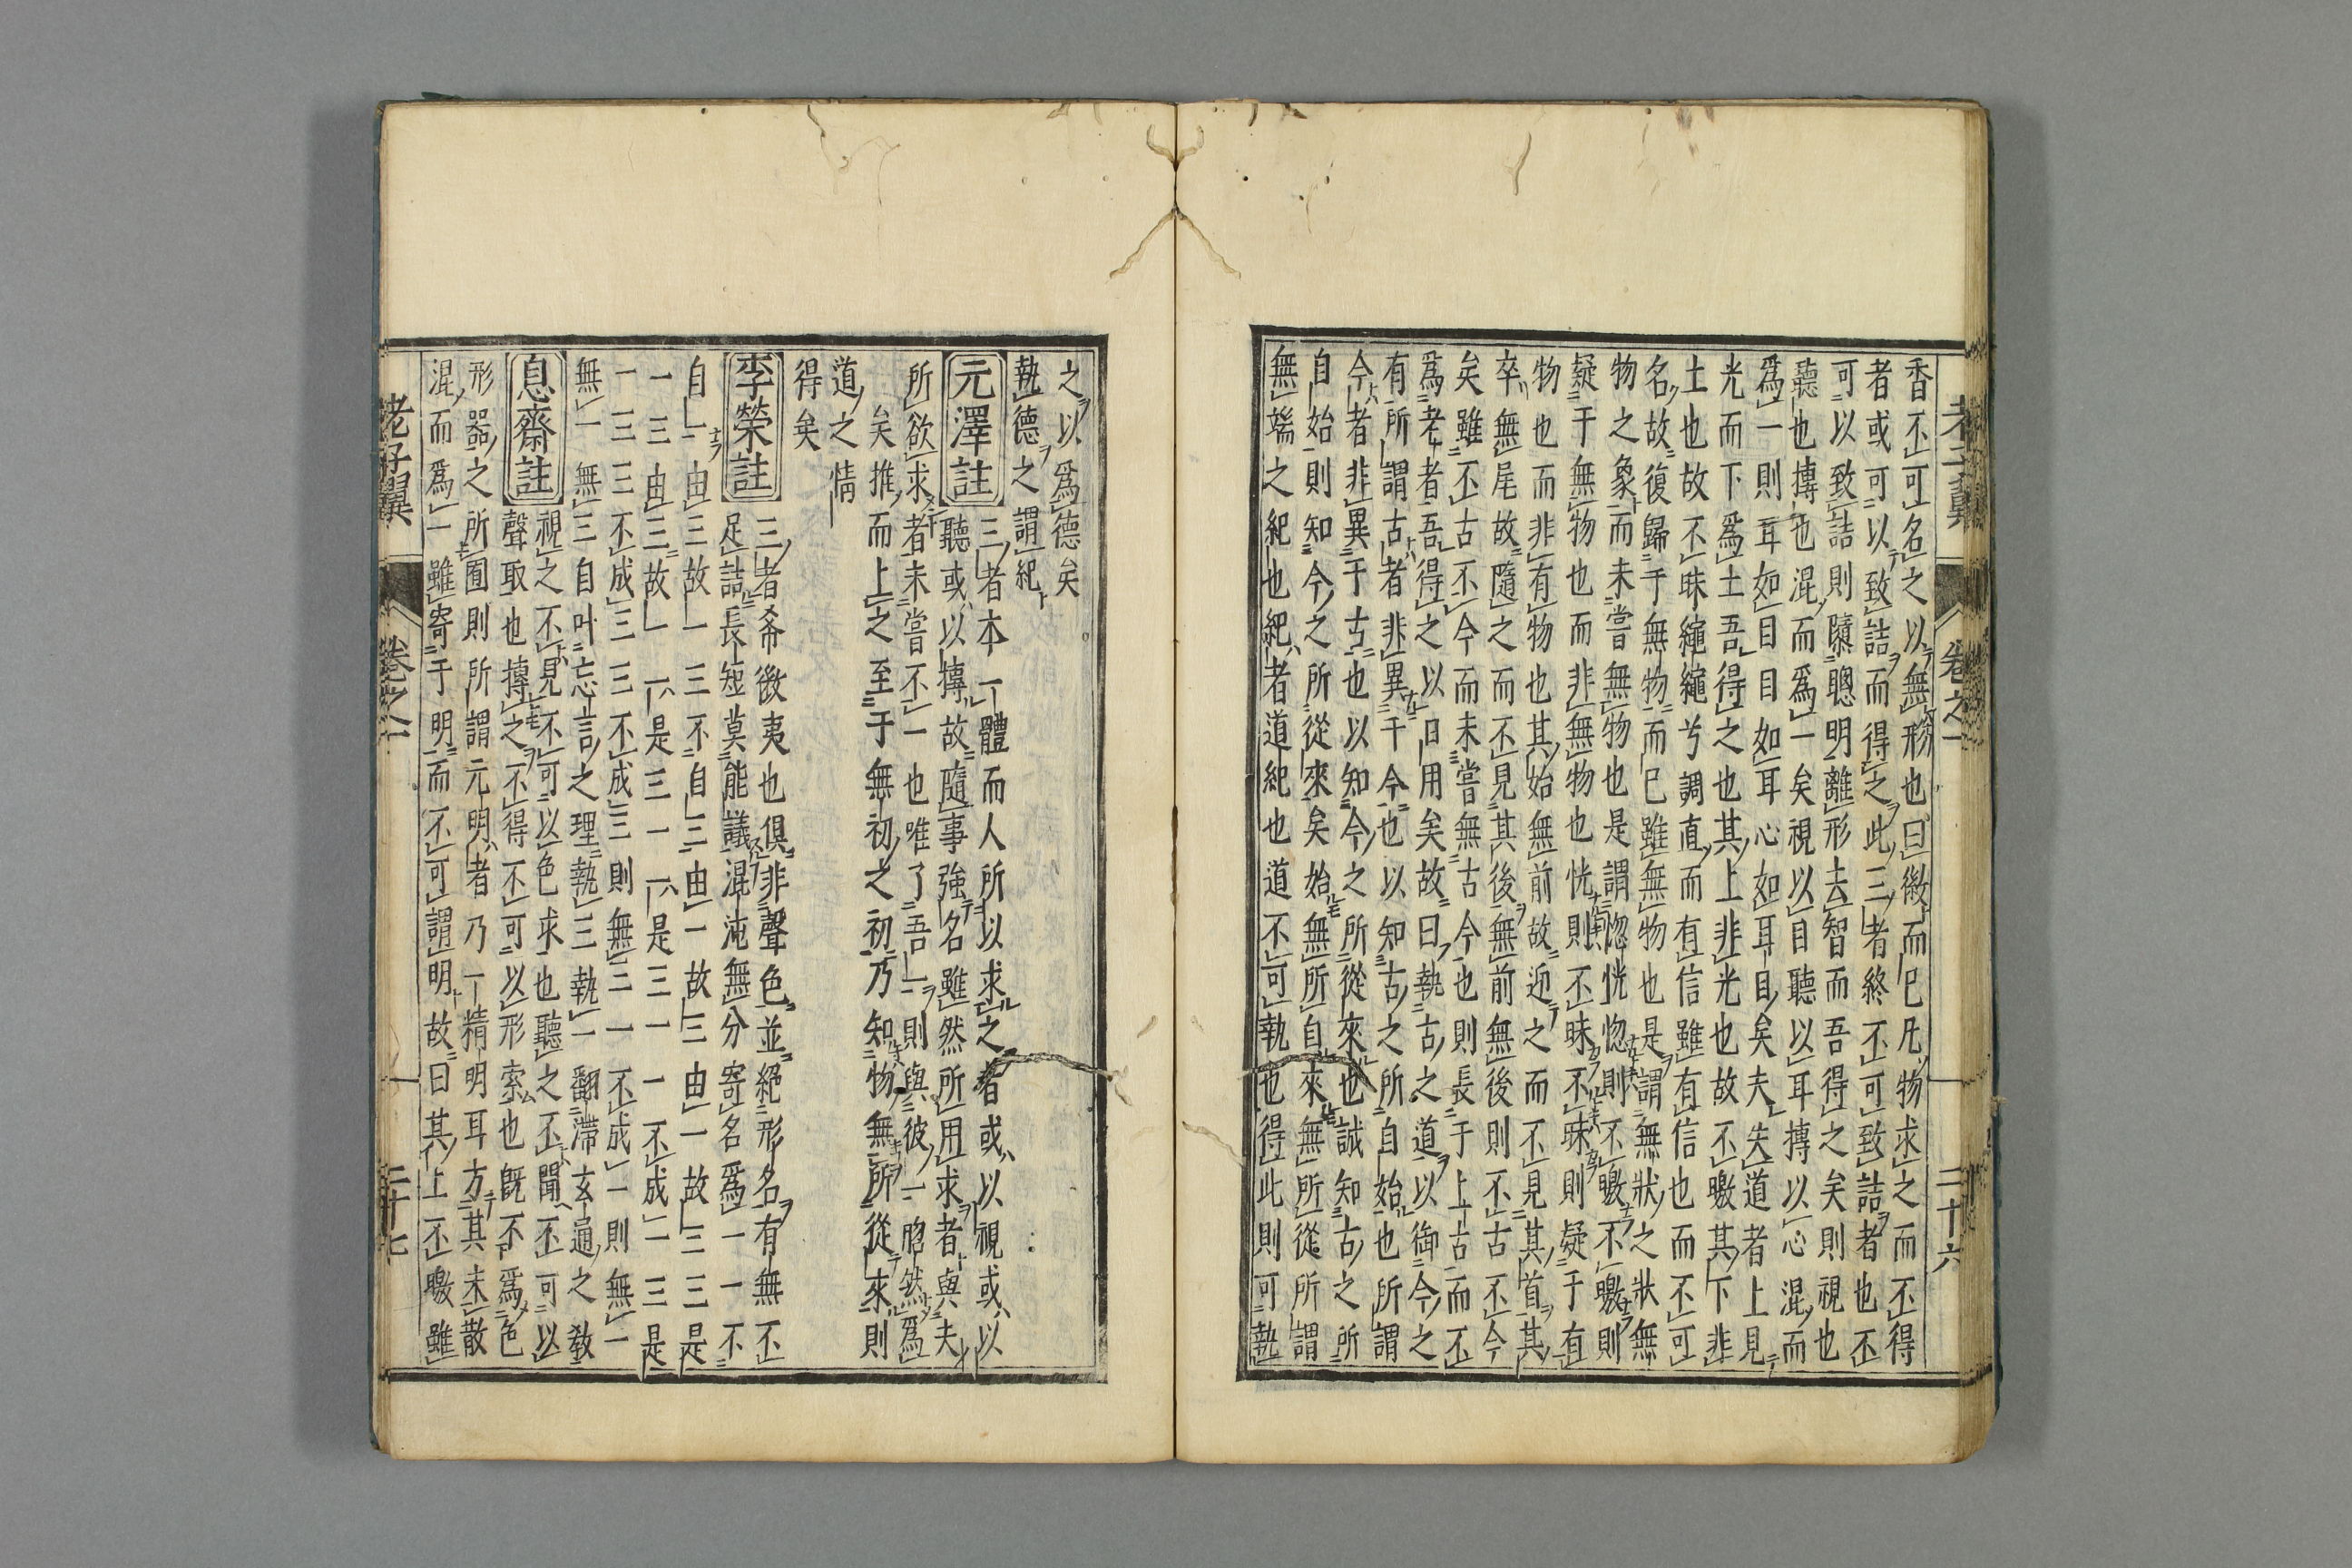 老子翼　卷之一　二十六
香不可名之以無形也曰微而已凡物求之而不得
者或可以致詰而得之此三者終不可致詰者也不
可以致詰則隳聰明離形去智而吾得之矣則視也
聽也摶也混而爲一矣視以目聽以耳摶以心混而
爲一則耳如目目如耳心如耳目矣夫失道者上見
光而下爲土吾得之也其上非光也故不曒其下非
土也故不昧繩繩兮調直而有信雖有信也而不可
名故復歸于無物而已雖無物也是謂無狀之狀無
物之象而未嘗無物也是謂惚恍惚則不曒不曒則
疑于無物也而非無物也恍則不昧不昧則疑于有
物也而非有物也其始無前故迎之而不見其首其
卒無尾故隨之而不見其後無前無後則不古不今
矣雖不古不今而未嘗無古今也則長于上古而不
爲老者吾得之以日用矣故曰執古之道以御今之
有所謂古者非異于今也以知古之所自始也所謂
今者非異于古也以知今之所從來也誠知古之所
自始則知今之所從來矣始無所自來無所從所謂
無端之紀也紀者道紀也道不可執也得此則可執
之以爲德矣
執德之謂紀
元澤註　三者本一體而人所以求之者或以視或以
聽或以摶故隨事強名雖然所用求者與夫
所欲求者未嘗不一也唯了吾一則與彼一脗然爲
矣推而上之至于無初之初乃知物無所從來則
道之情
得矣
李榮註　三者希微夷也俱非聲色並絕形名有無不
足詰長短莫能議混沌無分寄名爲一一不
自一由三故一三不自三由一故三由一故三三是
一三由三故一一是三一一是三一一不成一三是
一三三不成三三不成三則無三一不成一則無一
無一無三自叶忘言之理執三執一翻滯玄通之教
息齋註　視之不見不可以色求也聽之不聞不可以
聲取也摶之不得不可以形索也既不爲色
形器之所囿則所謂元明者乃一精明耳方其未散
混而爲一雖寄于明而不可謂明故曰其上不曒雖
老子翼　卷之一　二十七